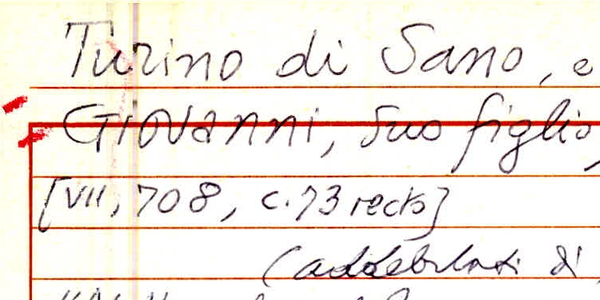 Turino di Sano, e
Giovanni, suo figlio,
[VII, 708, c. 73 recto]
(addebitati di